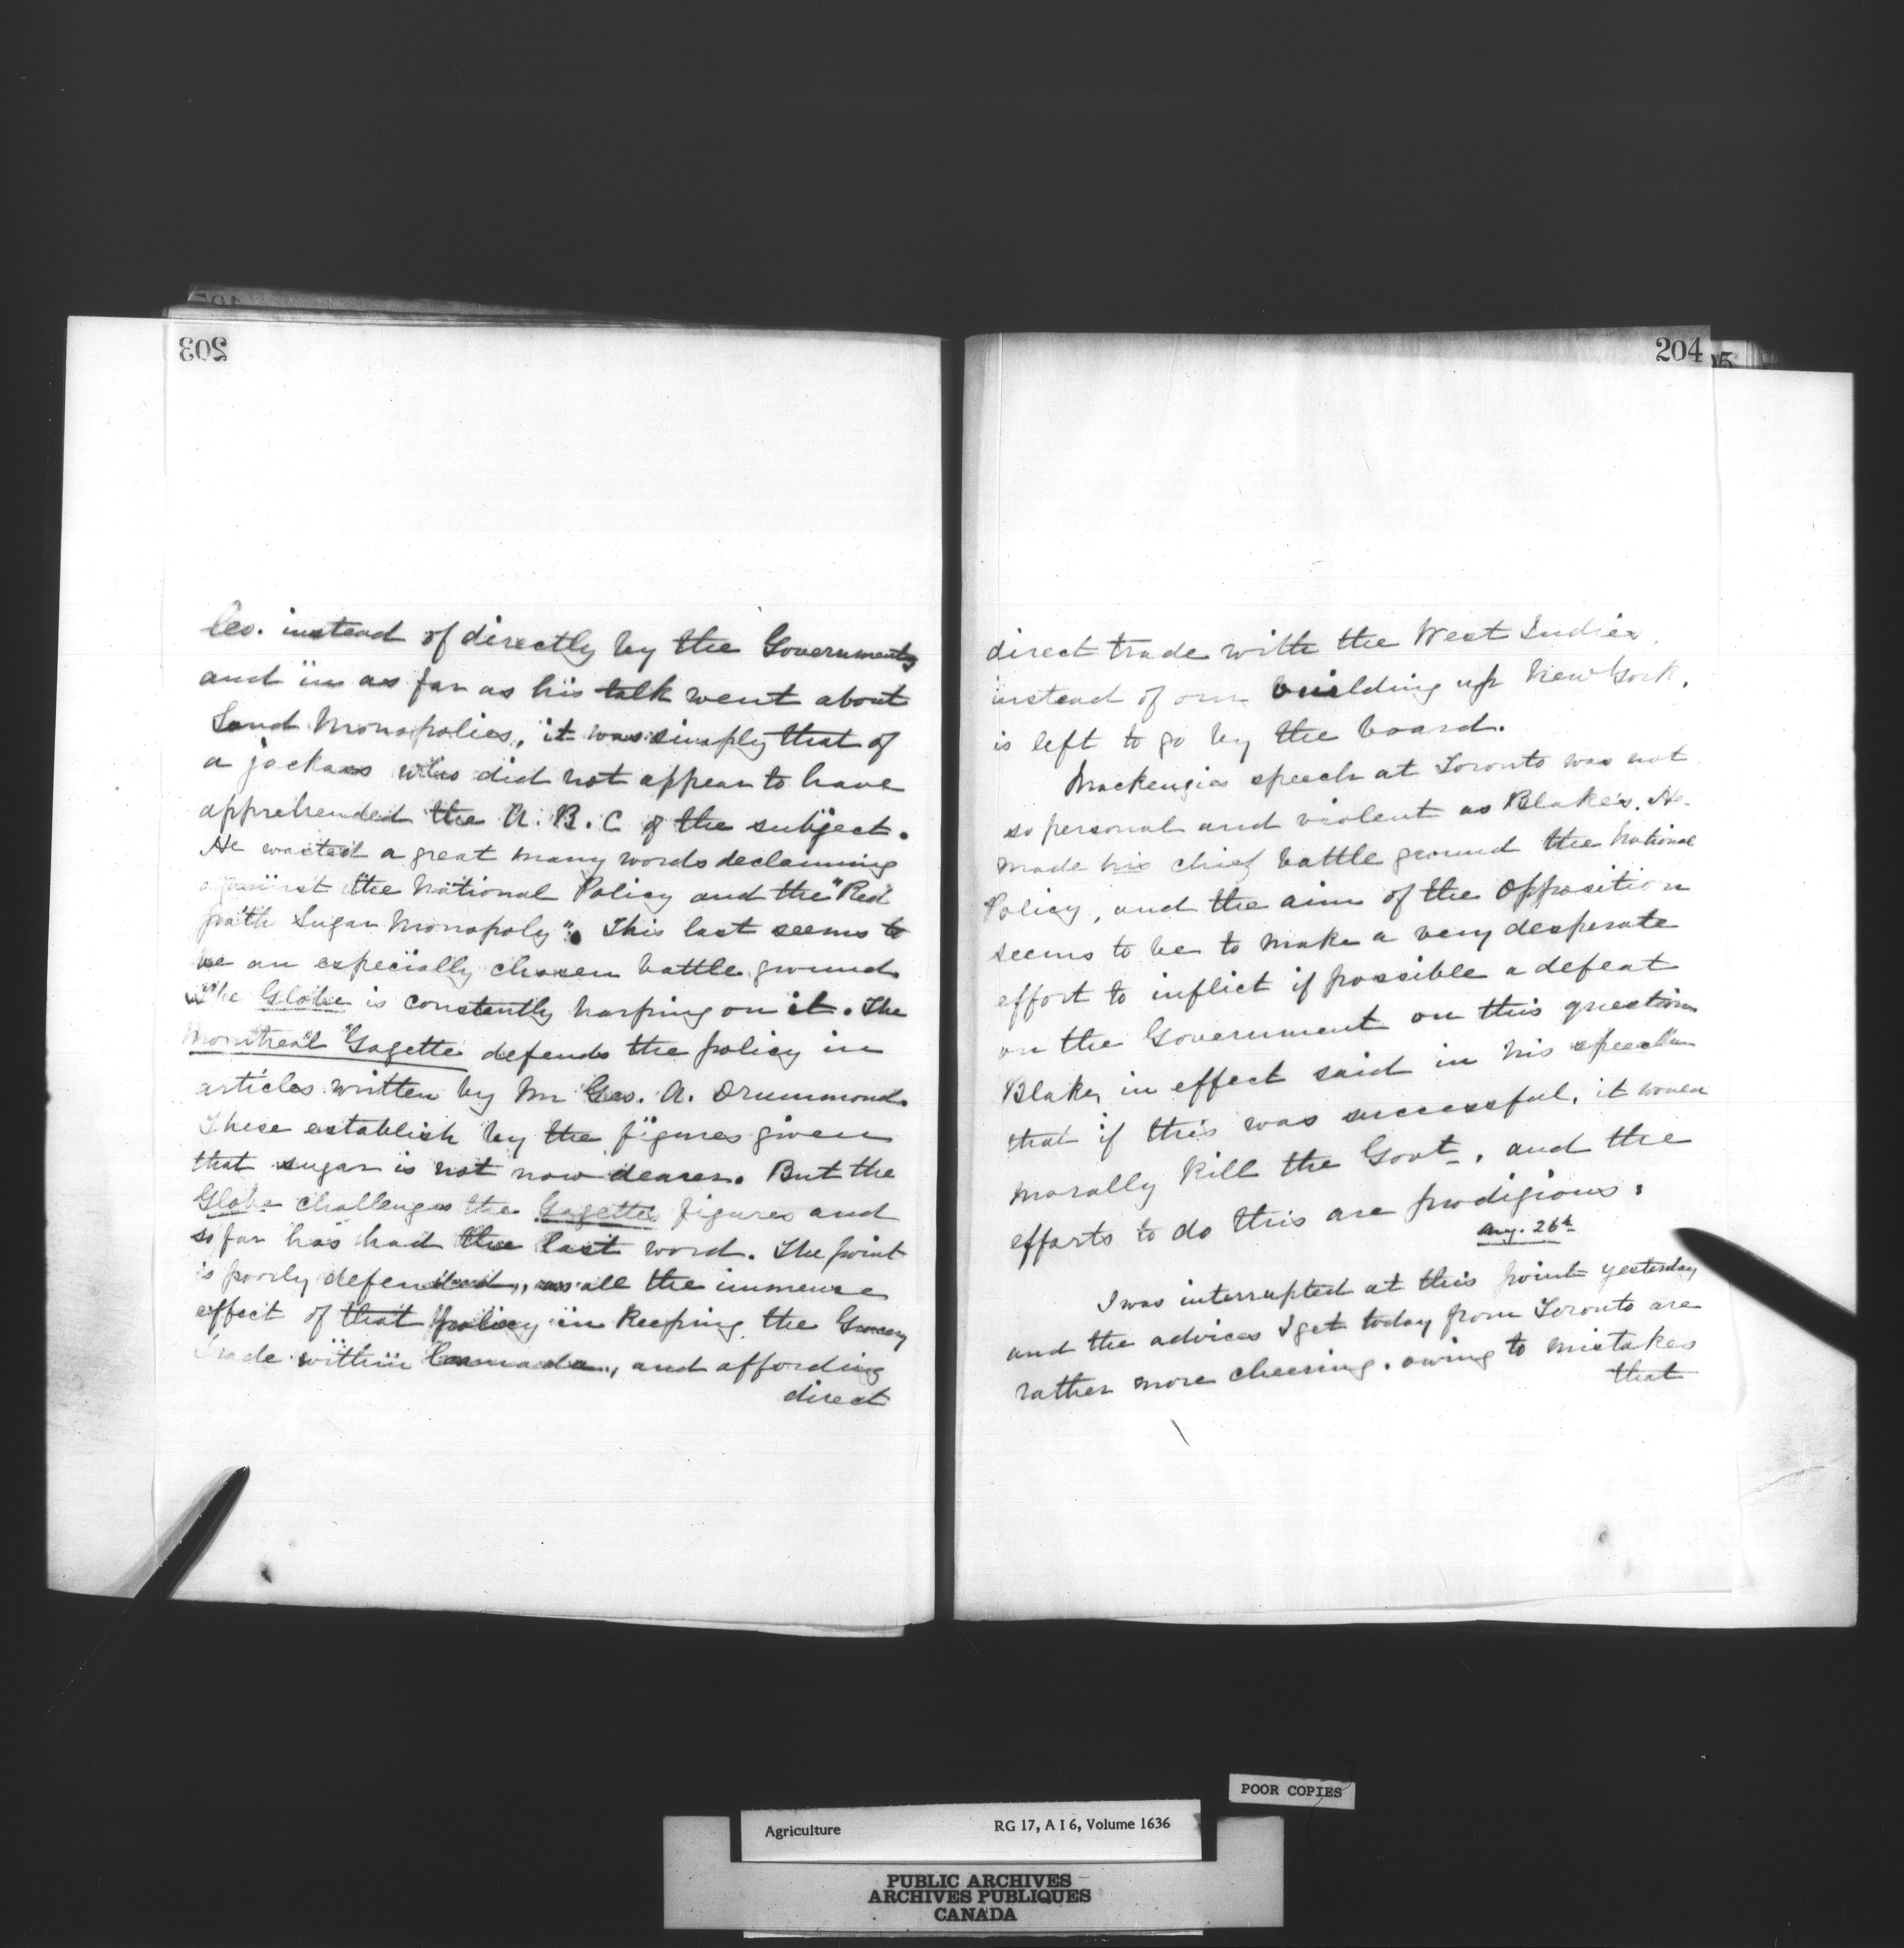 203
Co. instead of directly by the Governments
and in as far as his talk went about
Land Monopolies, it was simply that of
a jackass who did not appear to have
apprehended the A. B. C of the subject.
He wasted a great many words declaiming
against the National Policy and the "Red
path Sugar Monopoly". This last seems to
be an especially chosen battle ground
The Globe is constantly harping on it. The
Montreal Gazette defends the policy in
articles written by Mr Geo. A. Drummond.
These establish by the figures given
that sugar is not now dearer. But the
Globe challenges the Gazettes figures and
so far has had the last word. The point
is poorly defended, as all the immense
effect of that policy in keeping the Grocery
Trade within Canada, and affording
direct
204
direct trade with the West Indies,
instead of our building up New York,
is left to go by the board.
Mackenzies speech at Toronto was not
so personal and violent as Blake's. He
made his chief battle ground the National
Policy, and the aim of the Opposition
seems to be to make a very desperate
effort to inflict if possible a defeat
on the Government on this question
Blake, in effect said in his speech
that if this was successful, it would
morally kill the Govt, and the
efforts to do this are prodigious.
Aug. 26th
I was interrupted at this point yesterday
and the advices I get today from Toronto are
rather more cheering. owing to mistakes
that
POOR COPIES
Agriculture RG 17, A I 6, Volume 1636
PUBLIC ARCHIVES
ARCHIVES PUBLIQUES
CANADA